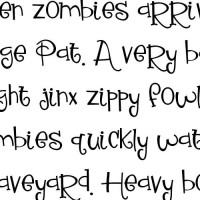 en zombies arriv
ge Pat. A very b
ght jinx zippy fowl
mbies quickly wat
aveyard. Heavy bo